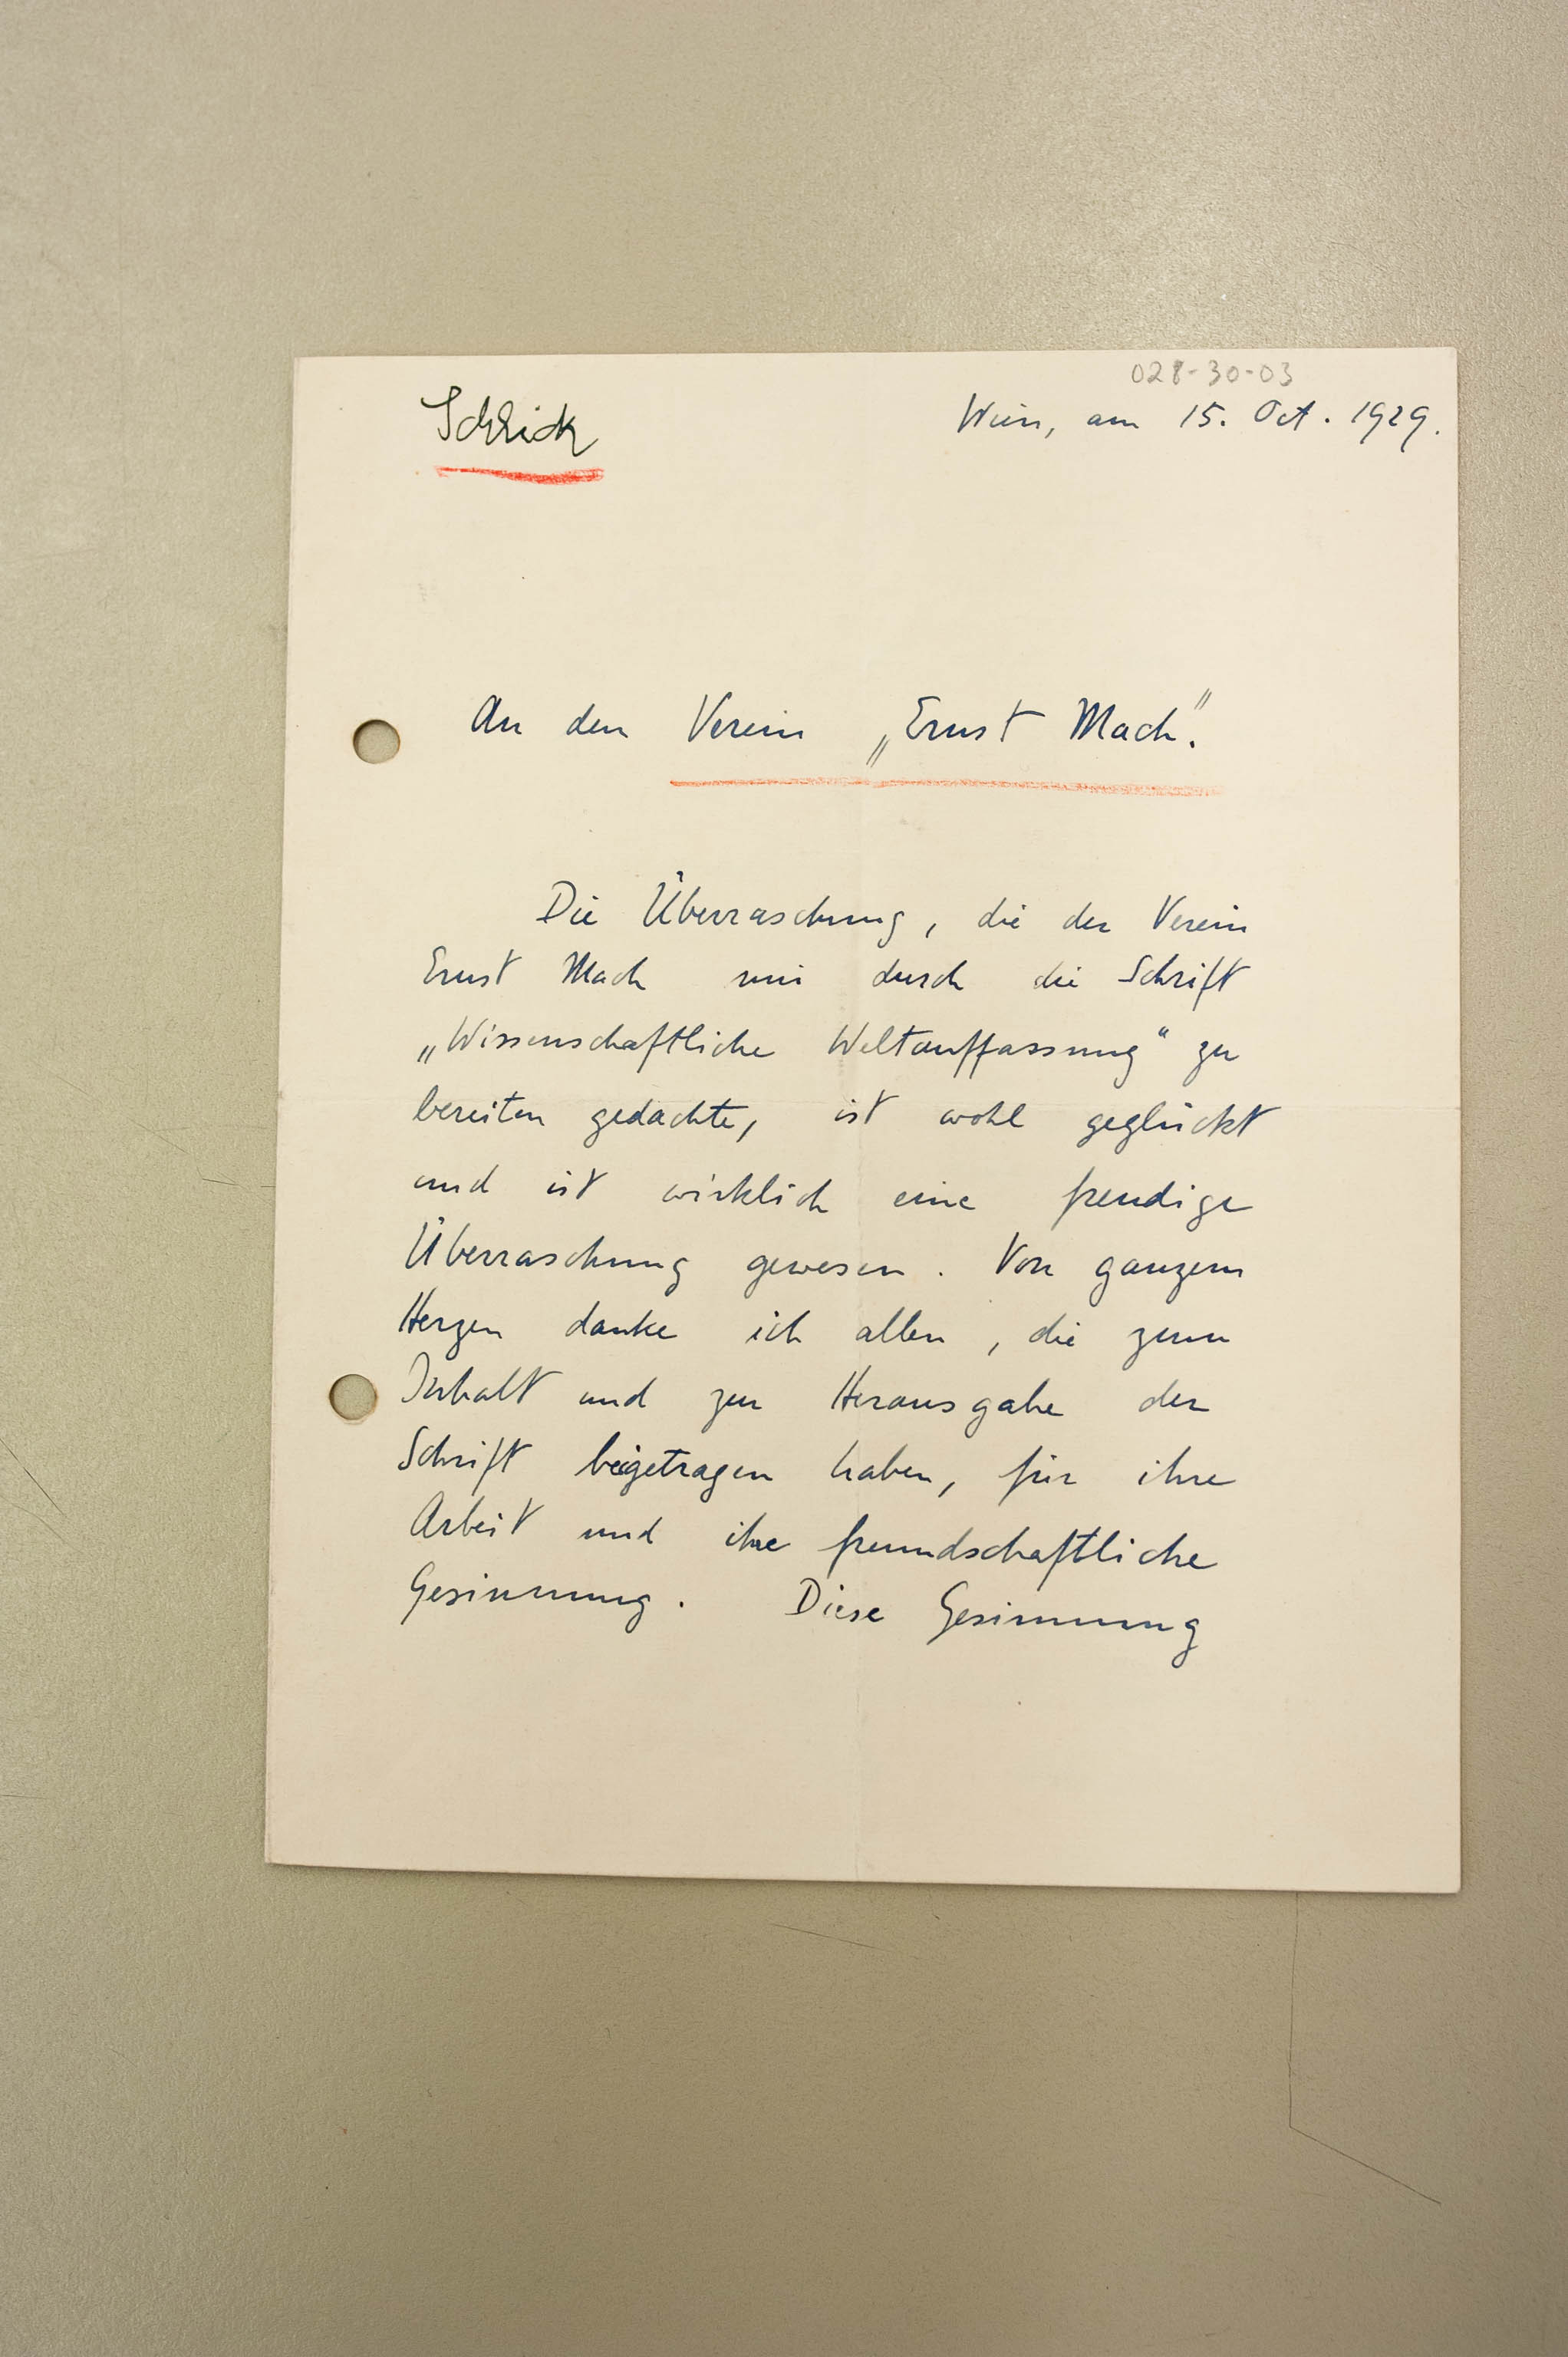 028-30-03
Schlick
Wien, am 15. Oct. 1929.
An den Verein „Ernst Mach".
Die Überraschung, die der Verein
Ernst Mach mir durch die Schrift
„Wissenschaftliche Weltauffassung" zu
bereiten gedachte, ist wohl geglückt
und ist wirklich eine freudige
Überraschung gewesen. Von ganzem
Herzen danke ich allen, die zum
Inhalt und zur Herausgabe der
Schrift beigetragen haben, für ihre
Arbeit und ihre freundschaftliche
Gesinnung. Diese Gesinnung